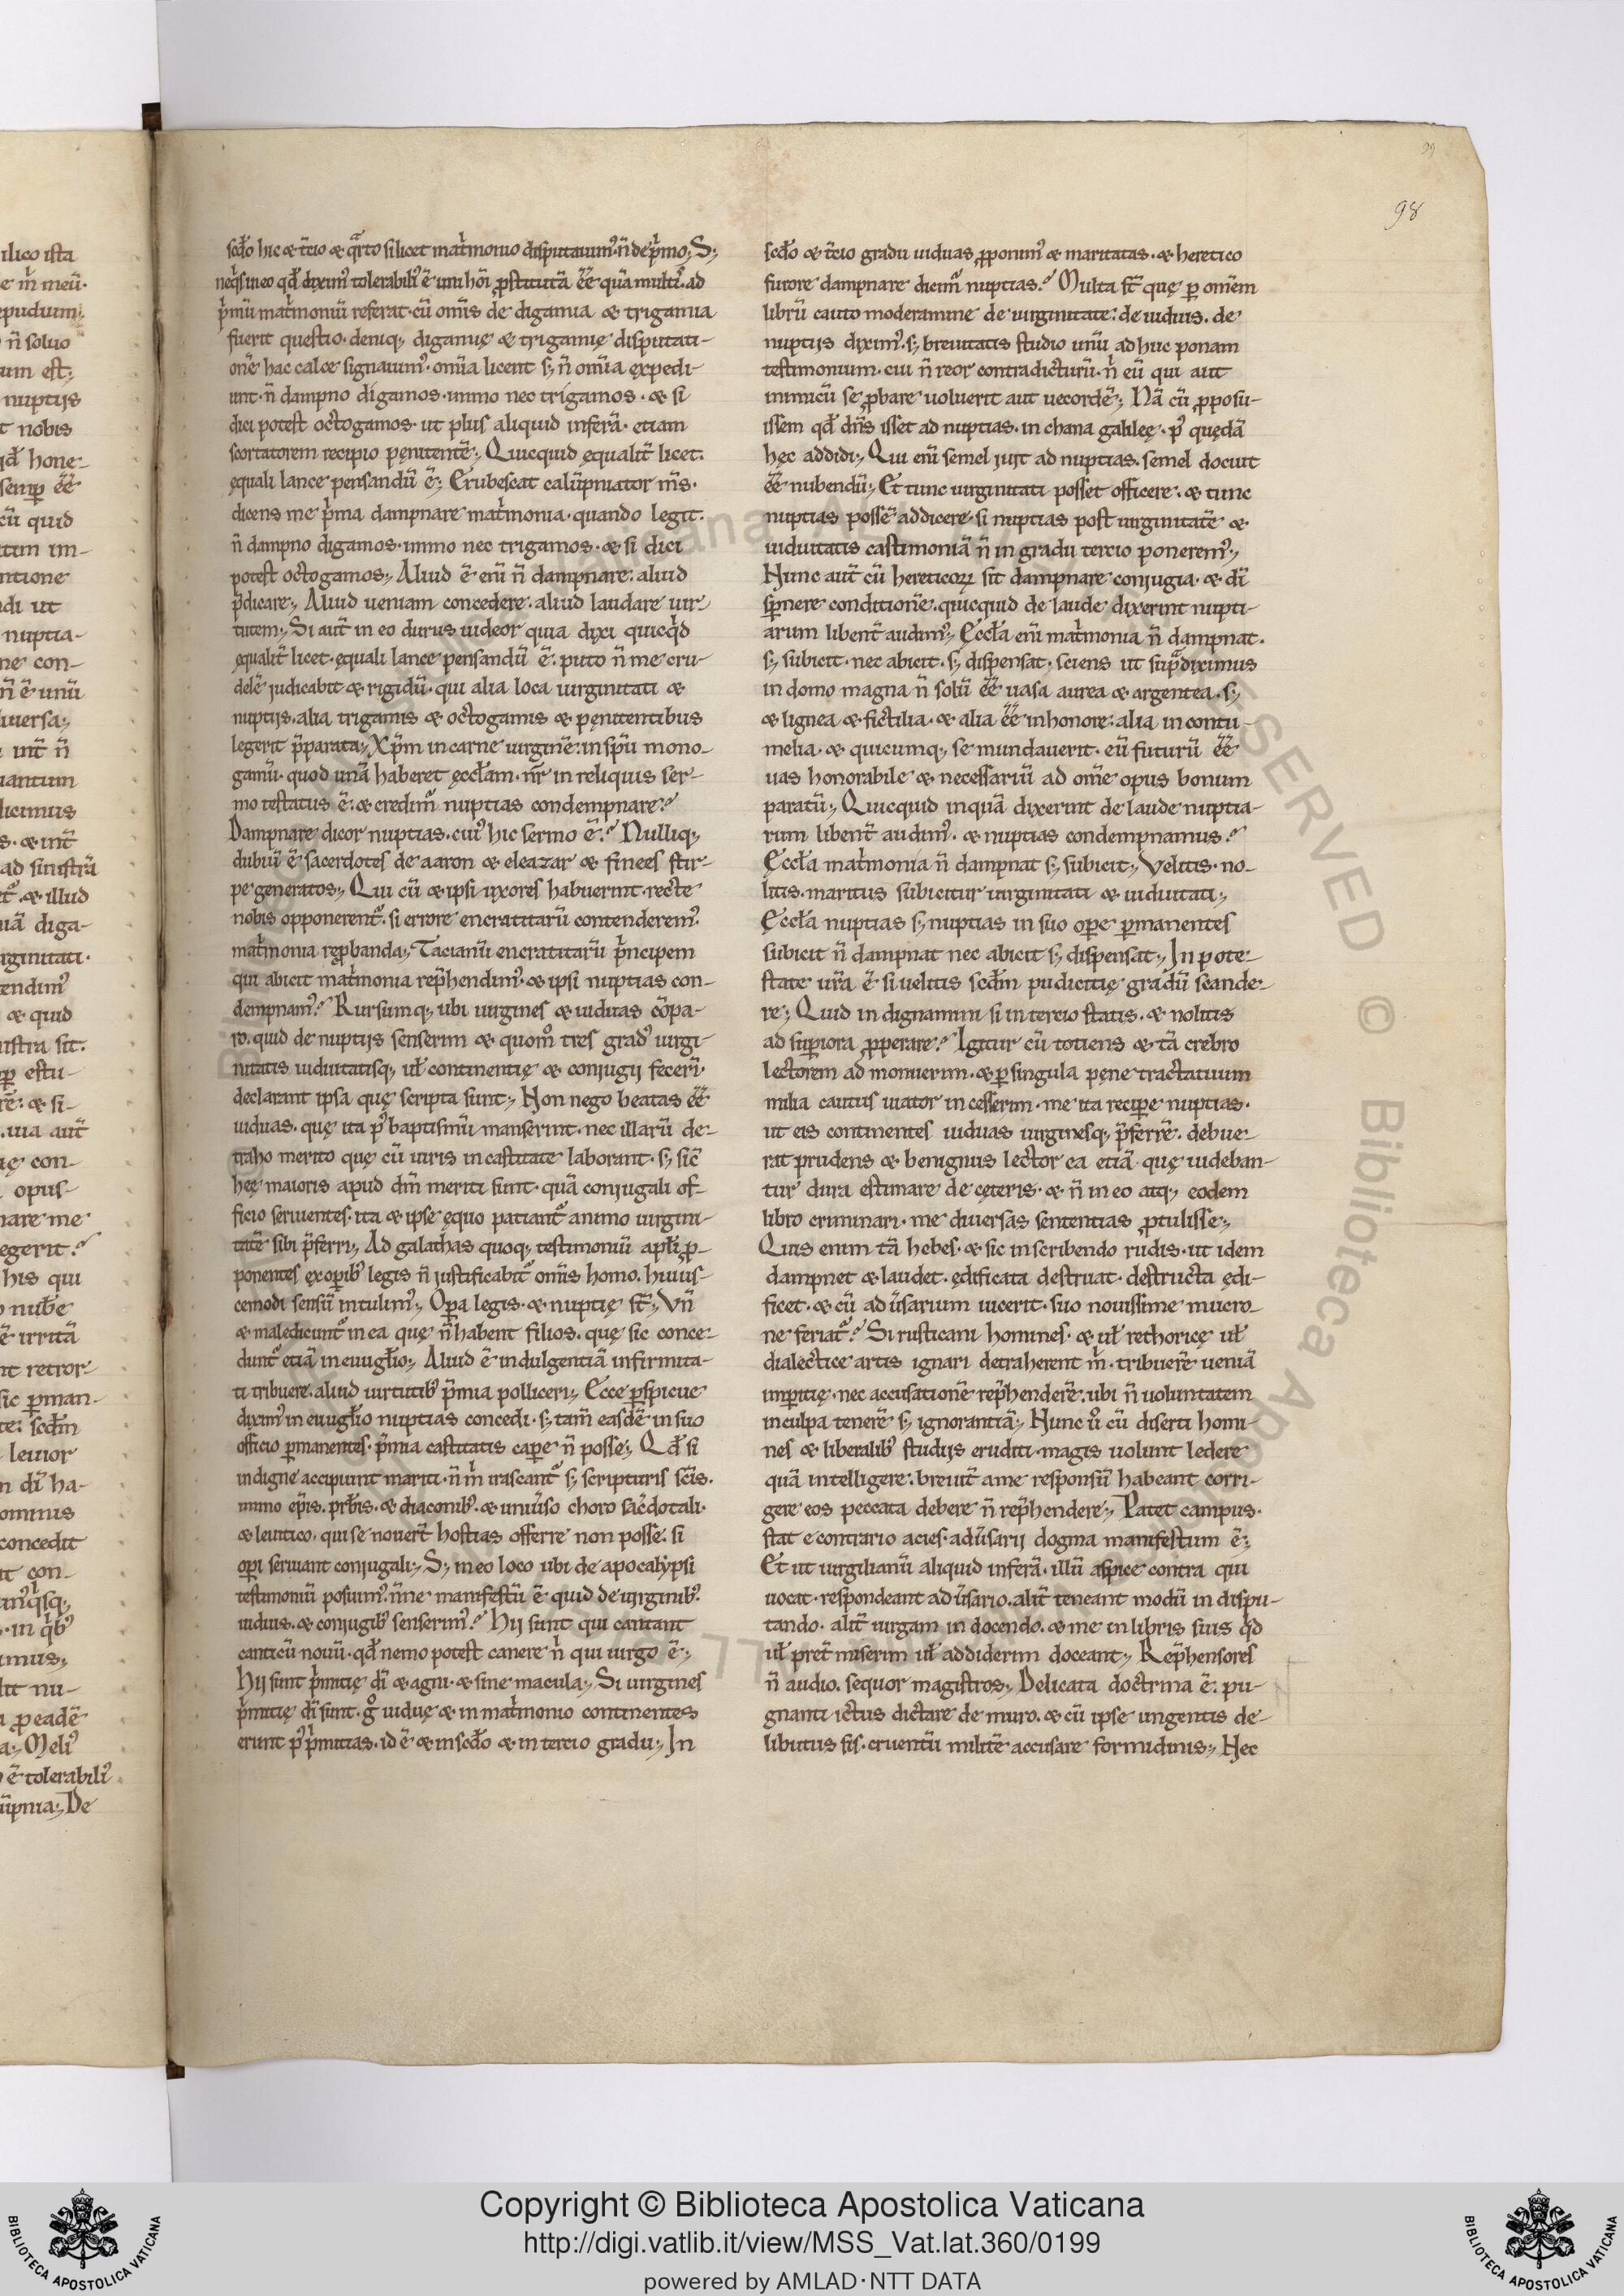 98
ilico ista
e m̄ meū·
epudium;
n̄ soluo
um est;
nuptijs
t nobis
qđ hone-
semꝑ ēē
cū quid
tim im-
ntione
di ut
nuptia-
ne con-
n̄ ē unū
iuersa;
int̄ n̄
uantum
dicimus
s· & int̄
ad sinistrā
& illud
uā diga-
irginitati·
tendim᾿
& quid
istra sit·
ꝑ estu-
& si-
uia aut̄
ię con-
opus-
nare me
egerit?
his qui
nub̄e
ē irritā
nt retror-
sic ꝑman-
te: scđm
leuior
n dī ha-
ominis
concedit
it con-
in q̄b᾿
imus;
lit nu-
ꝓ eadē
a; Meli᾿
ē tolerabili᾿
ūpnia; De
scđo hic & t̄cio & q̄rto silicet mat̓monio disputauim᾿ n̄ de p̓mo; S;
neq̓s in eo qđ dixim᾿ tolerabili᾿ ē uni hōi ꝓstitutā ēē quā multis· ad
p̓mū mat̓moniū referat· cū om̄s de digamia & trigamia
fuerit questio· deniq; digamię & trigamię disputati-
onē hac calce signauim᾿· om̄ia licent s; n̄ om̄ia expedi-
unt· n̄ dampno digamos· immo nec trigamos· & si
dici potest octogamos· ut plus aliquid inferā· etiam
scortatorem recipio pęnitentē; Quicquid ęqualit̄ licet:
ęquali lance pensandū ē; Erubescat calūpniator m̄s·
dicens me p̓ma dampnare mat̓monia· quando legit·
n̄ dampno digamos· immo nec trigamos· & si dici
potest octogamos; Aliud ē enī n̄ dampnare: aliud
p̄dicare; Aliud ueniam concedere· aliud laudare uir
tutem; Si aut̄ in eo durus uideor quia dixi quicq̓d
ęqualit̄ licet· ęquali lance pensandū ē: puto n̄ me cru-
delē judicabit & rigidū· qui alia loca uirginitati &
nuptijs· alia trigamis & octogamis & pęnitentibus
legerit p̄parata; Xp̄m in carne uirginē: in sp̄u mono-
gamū· quod unā haberet ęccl̄am· nr̄ in reliquis ser-
mo testatus ē: & credim᾿ nuptias condempnare?
Dampnare dicor nuptias· cui᾿ hic sermo ē? Nulliq;
dubiū ē sacerdotes de aaron & eleazar & finees stir-
pe generatos; Qui cū & ipsi uxores habuerint· recte
nobis opponerent᾿· si errore encratitarū contenderem᾿
mat̓monia reꝓbanda; Tacianū encratitarū p̓ncipem
qui abicit mat̓monia rep̄hendim᾿· & ipsi nuptias con-
dempnam᾿? Rursumq; ubi uirgines & uiduas cōpa-
ro· quid de nuptijs senserim & quom̊ tres grad᾿ uirgi-
nitatis uiduitatisq; uł continentię & conjugij fecerī·
declarant ipsa quę scripta sunt; Non nego beatas ēē
uiduas· quę ita p᾿ baptismū manserint· nec illarū de-
traho merito quę cū uiris in castitate laborant· s; sic̄
hęę maioris apud dm̄ meriti sunt· quā conjugali of-
ficio seruientes· ita & ipsę ęquo patiant᾿ animo uirgini-
tatē sibi p̄ferri; Ad galathas quoq; testimoniū apłi ꝓ-
ponentes ex oꝑib᾿ legis n̄ justificabit᾿ om̄is homo· huius-
cemodi sensū intulim᾿; Oꝑa legis· & nuptię st̄; Vn̄
& maledicunt᾿ in ea quę n̄ habent filios· quę sic conce-
dunt᾿ etiā in euuglīo; Aliud ē indulgentiā infirmita-
ti tribuere: aliud uirtutib᾿ p̄mia polliceri; Ecce ꝑspicue
dixim᾿ in euuglīo nuptias concedi· s; tam̄ easdē in suo
officio ꝑmanentes· p̄mia castitatis caꝑe n̄ posse; Qđ si
indigne accipiunt mariti· n̄ m̓ irascant᾿ s; scripturis sc̄is·
immo ep̄is· prb̄is· & diaconib᾿· & uniūso choro sac̄dotali·
& leuitico· qui se nouer̄t hostias offerre non posse· si
oꝑi seruiant conjugali; S; in eo loco ubi de apocalypsi
testimoniū posuim᾿· n̄ne manifestū ē quid de uirginib᾿
uiduis· & conjugib᾿ senserim᾿? Hij sunt qui cantant
canticū nouū· qđ nemo potest canere n̓ qui uirgo ē;
Hij sunt p̓mitię dī & agni· & sine macula; Si uirgines
p̓mitię dī sunt· g̊ uiduę & in mat̓monio continentes
erunt p᾿ p̓mitias· id ē & in scđo & in tercio gradu; In
scđo & t̄cio gradu uiduas ꝓponim᾿ & maritatas· & heretico
furore dampnare dicim᾿ nuptias? Multa st̄ quę ꝑ om̄em
librū cauto moderamine de uirginitate: de uiduis· de
nuptijs dixim᾿· s; breuitatis studio unū ad huc ponam
testimonium· cui n̄ reor contradicturū· n̓ eū qui aut
inimicū se ꝓbare uoluerit aut uecordē; Nā cū ꝓposu-
issem qđ dn̄s isset ad nuptias· in chana galileę· p᾿ quędā
hęc addidi; Qui enī semel juit ad nuptias· semel docuit
ēē nubendū; Et tunc uirginitati posset officere: & tunc
nuptias posse addicere· si nuptias post uirginitatē &
uiduitatis castimoniā n̄ in gradu tercio ponerem᾿;
Nunc aut̄ cū hereticoꝝ sit dampnare conjugia· & dī
sꝑnere conditionē· quicquid de laude dixerint nupti-
arum libent̄ audim᾿; Ęccl̄a enī mat̓monia n̄ dampnat·
s; subicit· nec abicit· s; dispensat· sciens ut sup̄diximus
in domo magna n̄ solū ēē uasa aurea & argentea· s;
& lignea & fictilia· & alia ēē in honore: alia in contu-
melia· & quicumq; se mundauerit· eū futurū ēē
uas honorabile & necessariū ad om̄e opus bonum
paratū; Quicquid inquā dixerint de laude nuptia-
rum libent̄ audim᾿· & nuptias condempnamus?
Ęccl̄a mat̓monia n̄ dampnat s; subicit; Velitis· no-
litis· maritus subicitur uirginitati & uiduitati;
Ęccl̄a nuptias s; nuptias in suo oꝑe ꝑmanentes
subicit n̄ dampnat nec abicit s; dispensat; In pote-
state ur̄a ē si uelitis scđm pudicitię gradū scande-
re; Quid in dignamini si in tercio statis· & nolitis
ad suꝑiora ꝓperare? Igitur cū totiens & tā crebro
lectorem ad monuerim· & ꝑ singula pęne tractatuum
milia cautus uiator in cesserim· me ita reciꝑe nuptias·
ut eis continentes uiduas uirginesq; p̄ferrē· debue-
rat prudens & benignus lector ea etiā quę uideban-
tur dura estimare de cęteris· & n̄ in eo atq; eodem
libro criminari· me diuersas sententias ꝓtulisse;
Quis enim tā hebes· & sic in scribendo rudis· ut idem
dampnet & laudet· ędificata destruat· destructa ędi-
ficet· & cū ad ūsarium uicerit· suo nouissime mucro-
ne feriat᾿? Si rusticani homines· & uł rethoricę uł
dialectice artis ignari detraherent m̓· tribuerē ueniā
imꝑitię· nec accusationē rep̄henderē· ubi n̄ uoluntatem
in culpa tenerē s; ignorantiā; Nunc ů cū diserti homi-
nes & liberalib᾿ studijs eruditi· magis uolunt ledere
quā intelligere: breuit̄ a me responsū habeant corri-
gere eos peccata debere n̄ rep̄hendere; Patet campus·
stat e contrario acies· adūsarij dogma manifestum ē;
Et ut uirgilianū aliquid inferā· illū aspice contra qui
uocat· respondeant ad ūsario· alit̄ teneant modū in dispu-
tando· alit̄ uirgam in docendo· & me in libris suis q̓d
uł pret̄ miserim uł addiderim doceant; Rep̄hensores
n̄ audio· sequor magistros; Delicata doctrina ē: pu-
gnanti ictus dictare de muro· & cū ipse ungentis de-
libutus sis· cruentū militē accusare formidinis; Nec
Copyright © Biblioteca Apostolica Vaticana
http://digi.vatlib.it/view/MSS_Vat.lat.360/0199
powered by AMLAD·NTT DATA
BIBLIOTECA APOSTOLICA VATICANA
BIBLIOTECA APOSTOLICA VATICANA